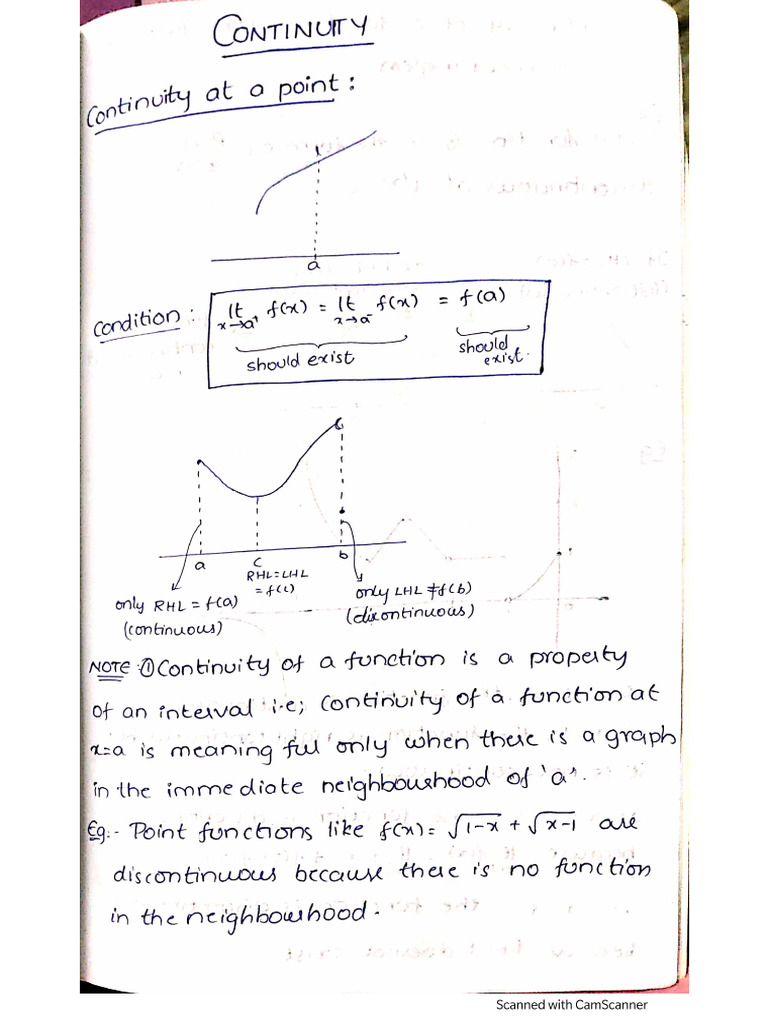 CONTINUITY
Continuity at a point:
a
Condition: lt x→a⁺ f(x) = lt x→a⁻ f(x) = f(a)
should exist should exist.
a c b
RHL=LHL = f(c)
only RHL = f(a) (continuous)
only LHL ≠f(b) (discontinuous)
NOTE: ① Continuity of a function is a property
of an interval i.e; continuity of a function at
x=a is meaning ful only when there is a graph
in the immediate neighbourhood of 'a'.
Eg:- Point functions like f(x)= √1-x + √x-1 are
discontinuous because there is no function
in the neighbourhood.
Scanned with CamScanner